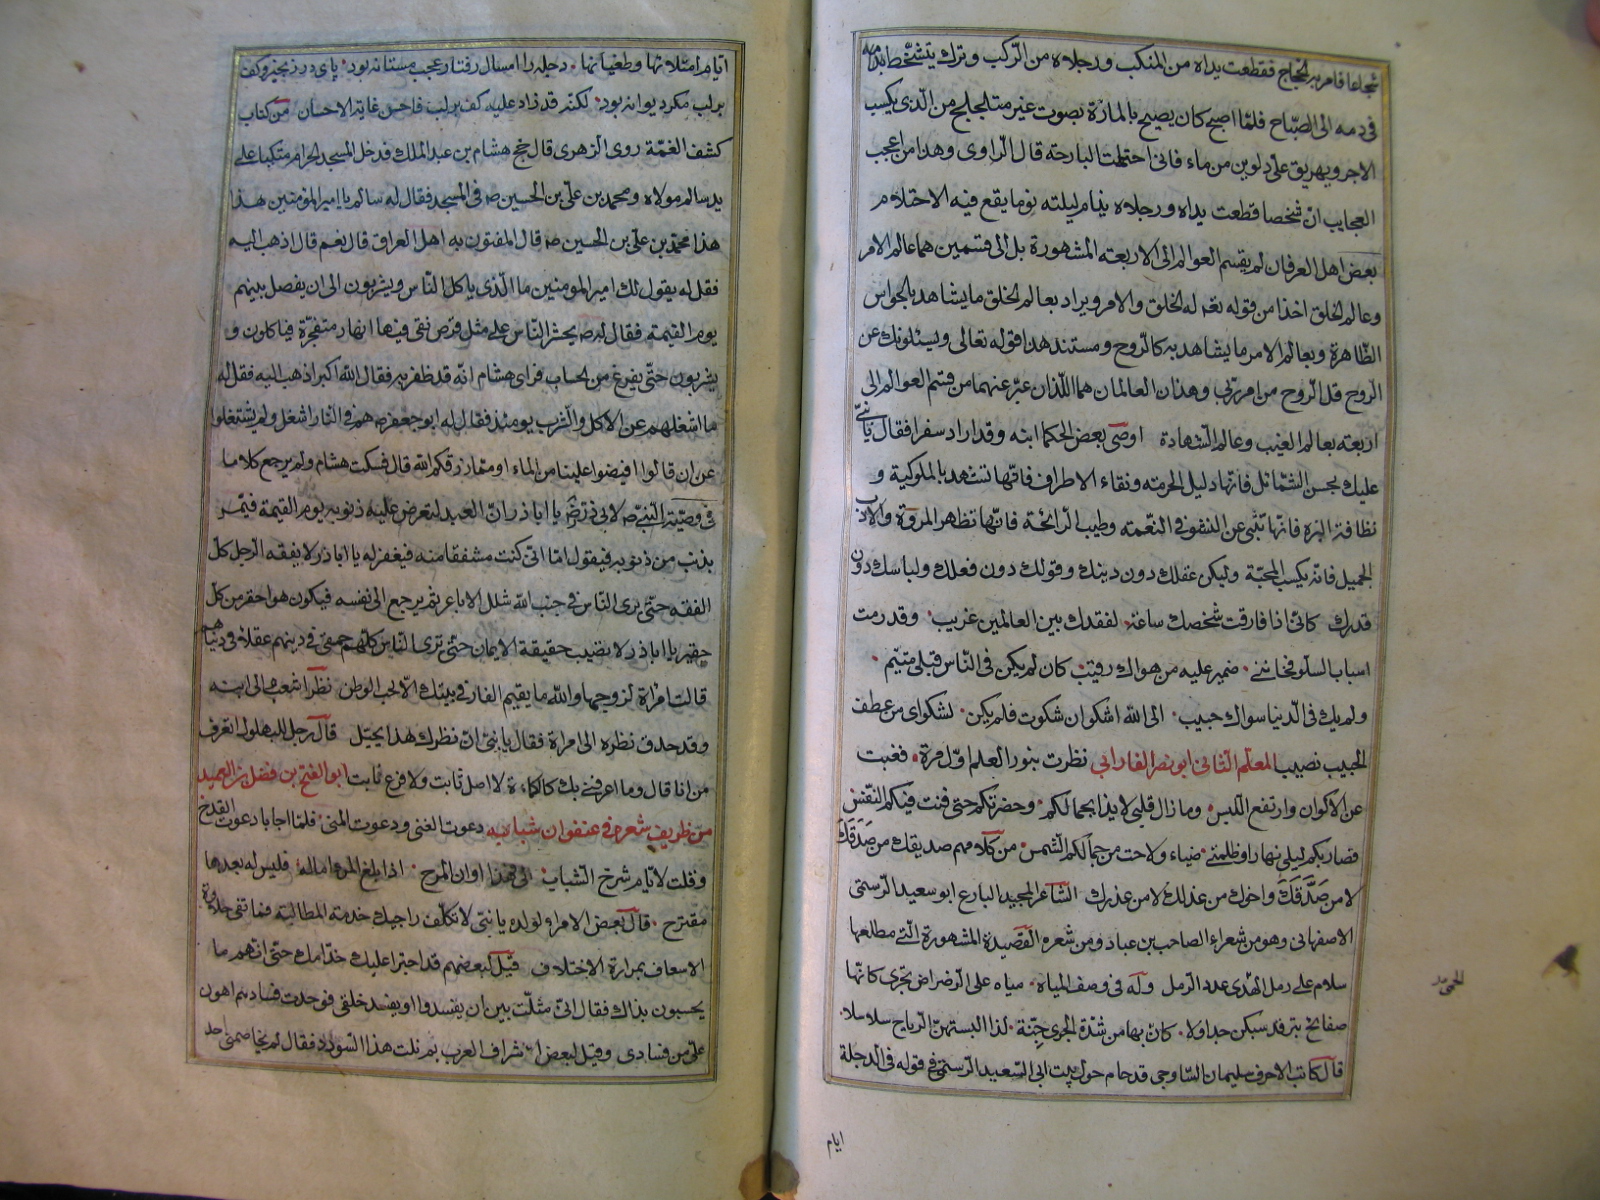 شجاعا فامر به الحجاج فقطعت يداه من المنكب ورجلاه من الركب وترك يتشحط بدمه
فى دمه الى الصباح فلما اصبح كان يصيح بالمارة بصوت غير متلجلج من الذى يكسب
الاجر ويهريق على دلوين من ماء فانى احتلمت البارحة قال الراوى وهذا من اعجب
العجايب ان شخصا قطعت يداه ورجلاه ينام ليلته نوما يقع فيه الاحتلام
بعض اهل العرفان لم يقسم العوالم الى الاربعة المشهورة بل الى قسمين هما عالم الامر
وعالم الخلق اخذا من قوله تعم له الخلق والامر ويراد بعالم الخلق ما يشاهد بالحواس
الظاهرة وبعالم الامر ما يشاهد به كالروح ومستند هذا قوله تعالى ويسئلونك عن
الروح قل الروح من امر ربى وهذان العالمان هما اللذان عبر عنهما من قسم العوالم الى
اربعة بعالم الغيب وعالم الشهادة اوصى بعض الحكما ابنه وقد اراد سفرا فقال يا بنى
عليك بحسن الشمائل فانها دليل الحرمة ونقاء الاطراف فانها تشهد بالملوكية و
نظافة البزة فانها تنبى عن النشو فى النعمة وطيب الرائحة فانها تظاهر المروة والادب
الجميل فانه يكسب المحبة وليكن عقلك دون دينك وقولك دون فعلك ولباسك دون
قدرك كانى اذا فارقت شخصك ساعة لفقدك بين العالمين غريب وقد رمت
اسباب السلو فخاننى ضمير عليه من هواك رقيب كان لم يكن فى الناس قبلى متيم
ولم يك فى الدنيا سواك حبيب الى الله اشكوان شكوت فلم يكن لشكواى من عطف
الحبيب نصيب المعلم الثانى ابو نصر الفارابى نظرت بنور العلم اول مرة فغبت
عن الاكوان وارتفع اللبس وما زال قلبى لايذا بجمالكم وحضرتكم حتى فنت فيكم النفس
فصار بكم ليلى نهارا وظلمتى ضياء ولاحت من جمالكم الشمس من كلامهم صديقك من صَدَقَكَ
لا من صَدَّقَكَ واخوك من عذلك لا من عذرك الشاعر المجيد البارع ابو سعيد الرستمى
الاصفهانى وهو من شعراء الصاحب بن عباد ومن شعره القصيدة المشهورة التى مطلعها
سلام على رمل الهدى عدد الرمل وله فى وصف المياه مياه على الرضراض تجرى كانها
صفائح تبر قد سبكن جداولا كان بها من شدة الجرى جنة لذا البستهن الرياح سلاسلا
قال كاتب الاحرف سليمان الساوجى قد حام حول بيت ابى السعيد الرستمى فى قوله فى الدجلة
ايام
ايام امتلائها وطغيانها دجله را امسال رفتار عجب مستانه بود پاى در زنجير وكف
بر لب مكر ديوانه بود لكنه قد زاد عليه كف بر لب فاحسن غاية الاحسان من كتاب
كشف الغمة روى الزهرى قال حج هشام بن عبد الملك فدخل المسجد الحرام متكيا على
يد سالم مولاه ومحمد بن على بن الحسين ص فى المسجد فقال له سالم يا امير المؤمنين هذا
هذا محمد بن على بن الحسين ص قال المفتون به اهل العراق قال نعم قال اذهب اليه
فقل له يقول لك امير المؤمنين ما الذى ياكل الناس ويشربون الى ان يفصل بينهم
يوم القيمة فقال له ص يحشر الناس على مثل قرص نقى فيها انهار متفجرة فيا كلون و
يشربون حتى يفرغ من الحساب فراى هشام انه قد ظفر به فقال الله اكبر اذهب اليه فقل له
ما اشغلهم عن الاكل والشرب يومئذ فقال له ابو جعفر ص هم فى النار اشغل ولم يشتغلوا
عن ان قالوا افيضوا علينا من الماء او مما رزقكم الله قال فسكت هشام ولم يرجع كلاما
فى وصية النبى ص لابى ذر رض يا اباذر ان العبد ليعرض عليه ذنوبه يوم القيمة فيمر
بذنب من ذنوبه فيقول اما انى كنت مشفقا منه فيغفر له يا اباذر لا يفقه الرجل كل
الفقه حتى يرى الناس فى جنب الله مثل الاباعر ثم يرجع الى نفسه فيكون هو احقر من كل
حقير يا اباذر لا يصيب حقيقة الايمان حتى ترى الناس كلهم حمقى فى دينهم عقلاء فى دنياهم
قالت امراة لزوجها والله ما يقيم الفار فى بيتك الا لحب الوطن نظر اشعب الى ابنه
وقد حدق نظره الى امراة فقال يا بنى ان نظرك هذا يحبل قال رجل للبهلول اتعرف
من انا قال وما اعرفنى بك كالكماءة لا اصل ثابت ولا فرع ثابت ابو الفتح بن فضل بن العميد
من ظريف شعره فى عنفوان شبابه دعوت الغنى ودعوت المنى فلما اجابا دعوت القدح
وقلت لايام شرخ الشباب الى فهذا اوان المرح اذا بلغ المرء اماله فليس له بعدها
مقترح قال بعض الامرا لولده يا بنى لا تكلف راجيك خدمة المطالبة فما تفى حلاوة
الاسعاف بمرارة الاختلاف قيل لبعضهم قد اجترا عليك خدامك حتى انهم ما
يحسبون بذاك فقال انى مثلت بين ان يفسدوا او يفسد خلقى فوجدت فسادهم اهون
على من فسادى وقيل لبعض اشراف العرب بم نلت هذا السودد فقال لم يخاصمنى احد